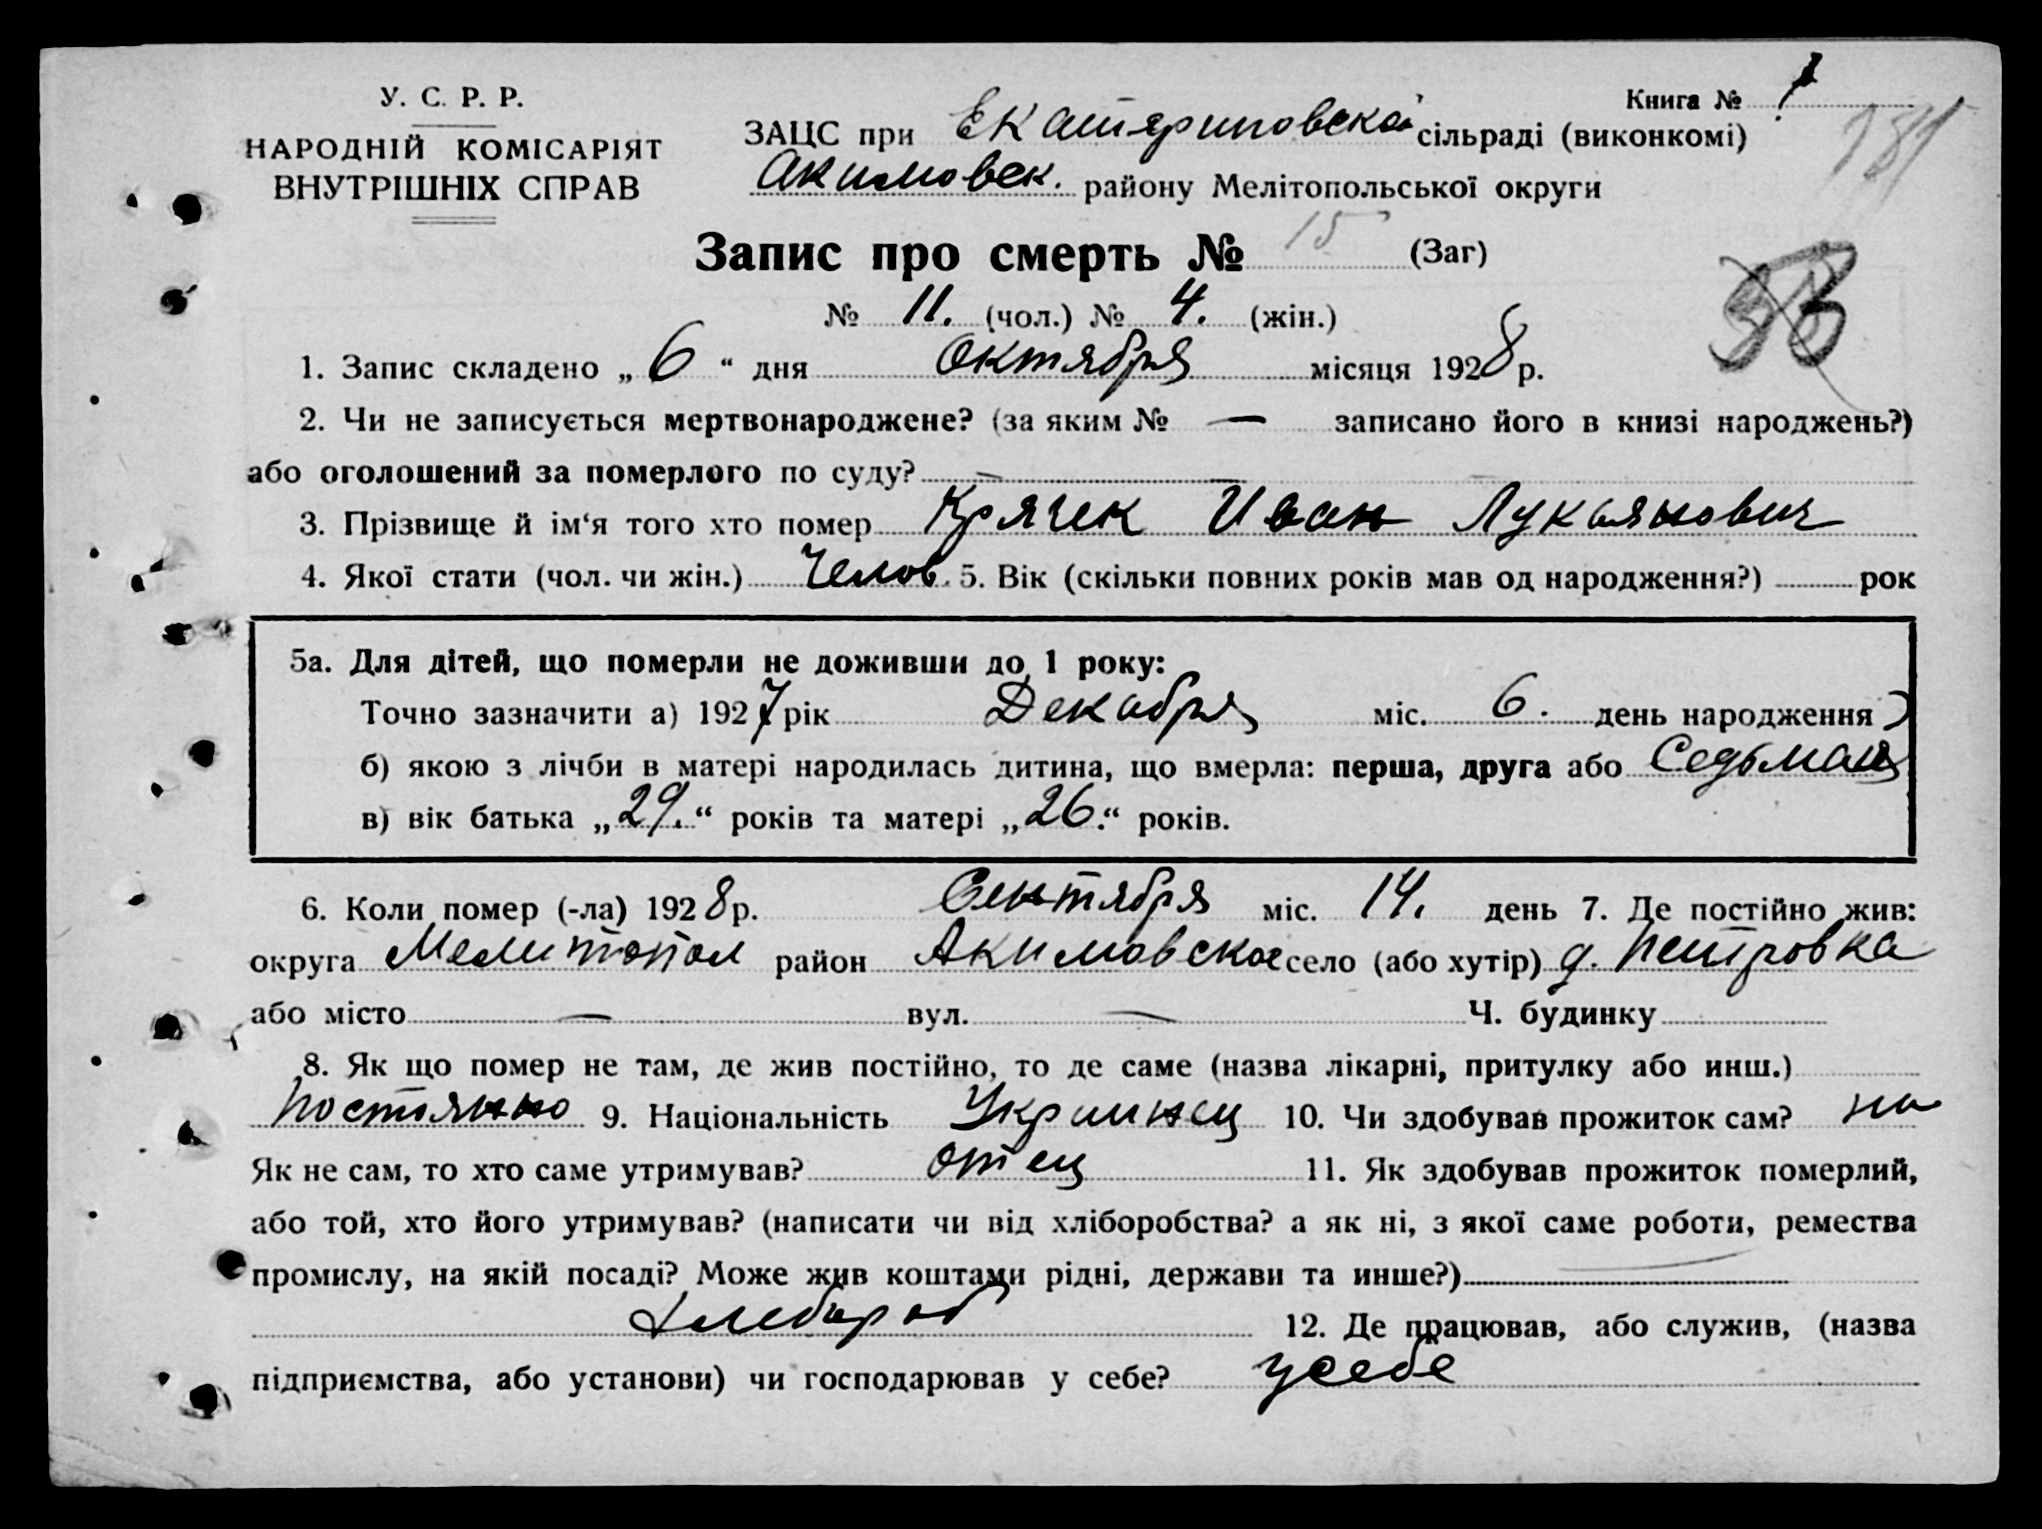 У. С. Р. Р.
НАРОДНІЙ КОМІСАРІЯТ
ВНУТРІШНІХ СПРАВ
Книга №
ЗАЦС при Екатериновской сільраді (виконкомі)
Акимовск. району Мелітопольської округи
Запис про смерть № 15 (Заг)
№ 11. (чол.) № 4. (жін.)
1. Запис складено „ 6 “ дня Октября місяця 1928 р.
2. Чи не записується мертвонароджене? (за яким № — записано його в книзі народжень?)
або оголошений за померлого по суду? —
3. Прізвище й ім‘я того хто помер Крячек Иван Лукьянович
4. Якої стати (чол. чи жін.) Челов. 5. Вік (скільки повних років мав од народження?) рок
5а. Для дітей, що померли не доживши до 1 року:
Точно зазначити а) 1927 рік Декабря міс. 6. день народження
б) якою з лічби в матері народилась дитина, що вмерла: перша, друга або Седьмая
в) вік батька „29.“ років та матері „26.“ років.
6. Коли помер (-ла) 1928 р. Сентября міс. 14. день 7. Де постійно жив:
округа Мелитопол район Акимовское село (або хутір) д. Петровка
або місто — вул. — Ч. будинку
8. Як що помер не там, де жив постійно, то де саме (назва лікарні, притулку або инш.)
Постоянно 9. Національність Украинец 10. Чи здобував прожиток сам?
Як не сам, то хто саме утримував? отец 11. Як здобував прожиток померлий,
або той, хто його утримував? (написати чи від хліборобства? а як ні, з якої саме роботи, ремества
промислу, на якій посаді? Може жив коштами рідні, держави та инше?)
хлебороб 12. Де працював, або служив, (назва
підприємства, або установи) чи господарював у себе? усебе